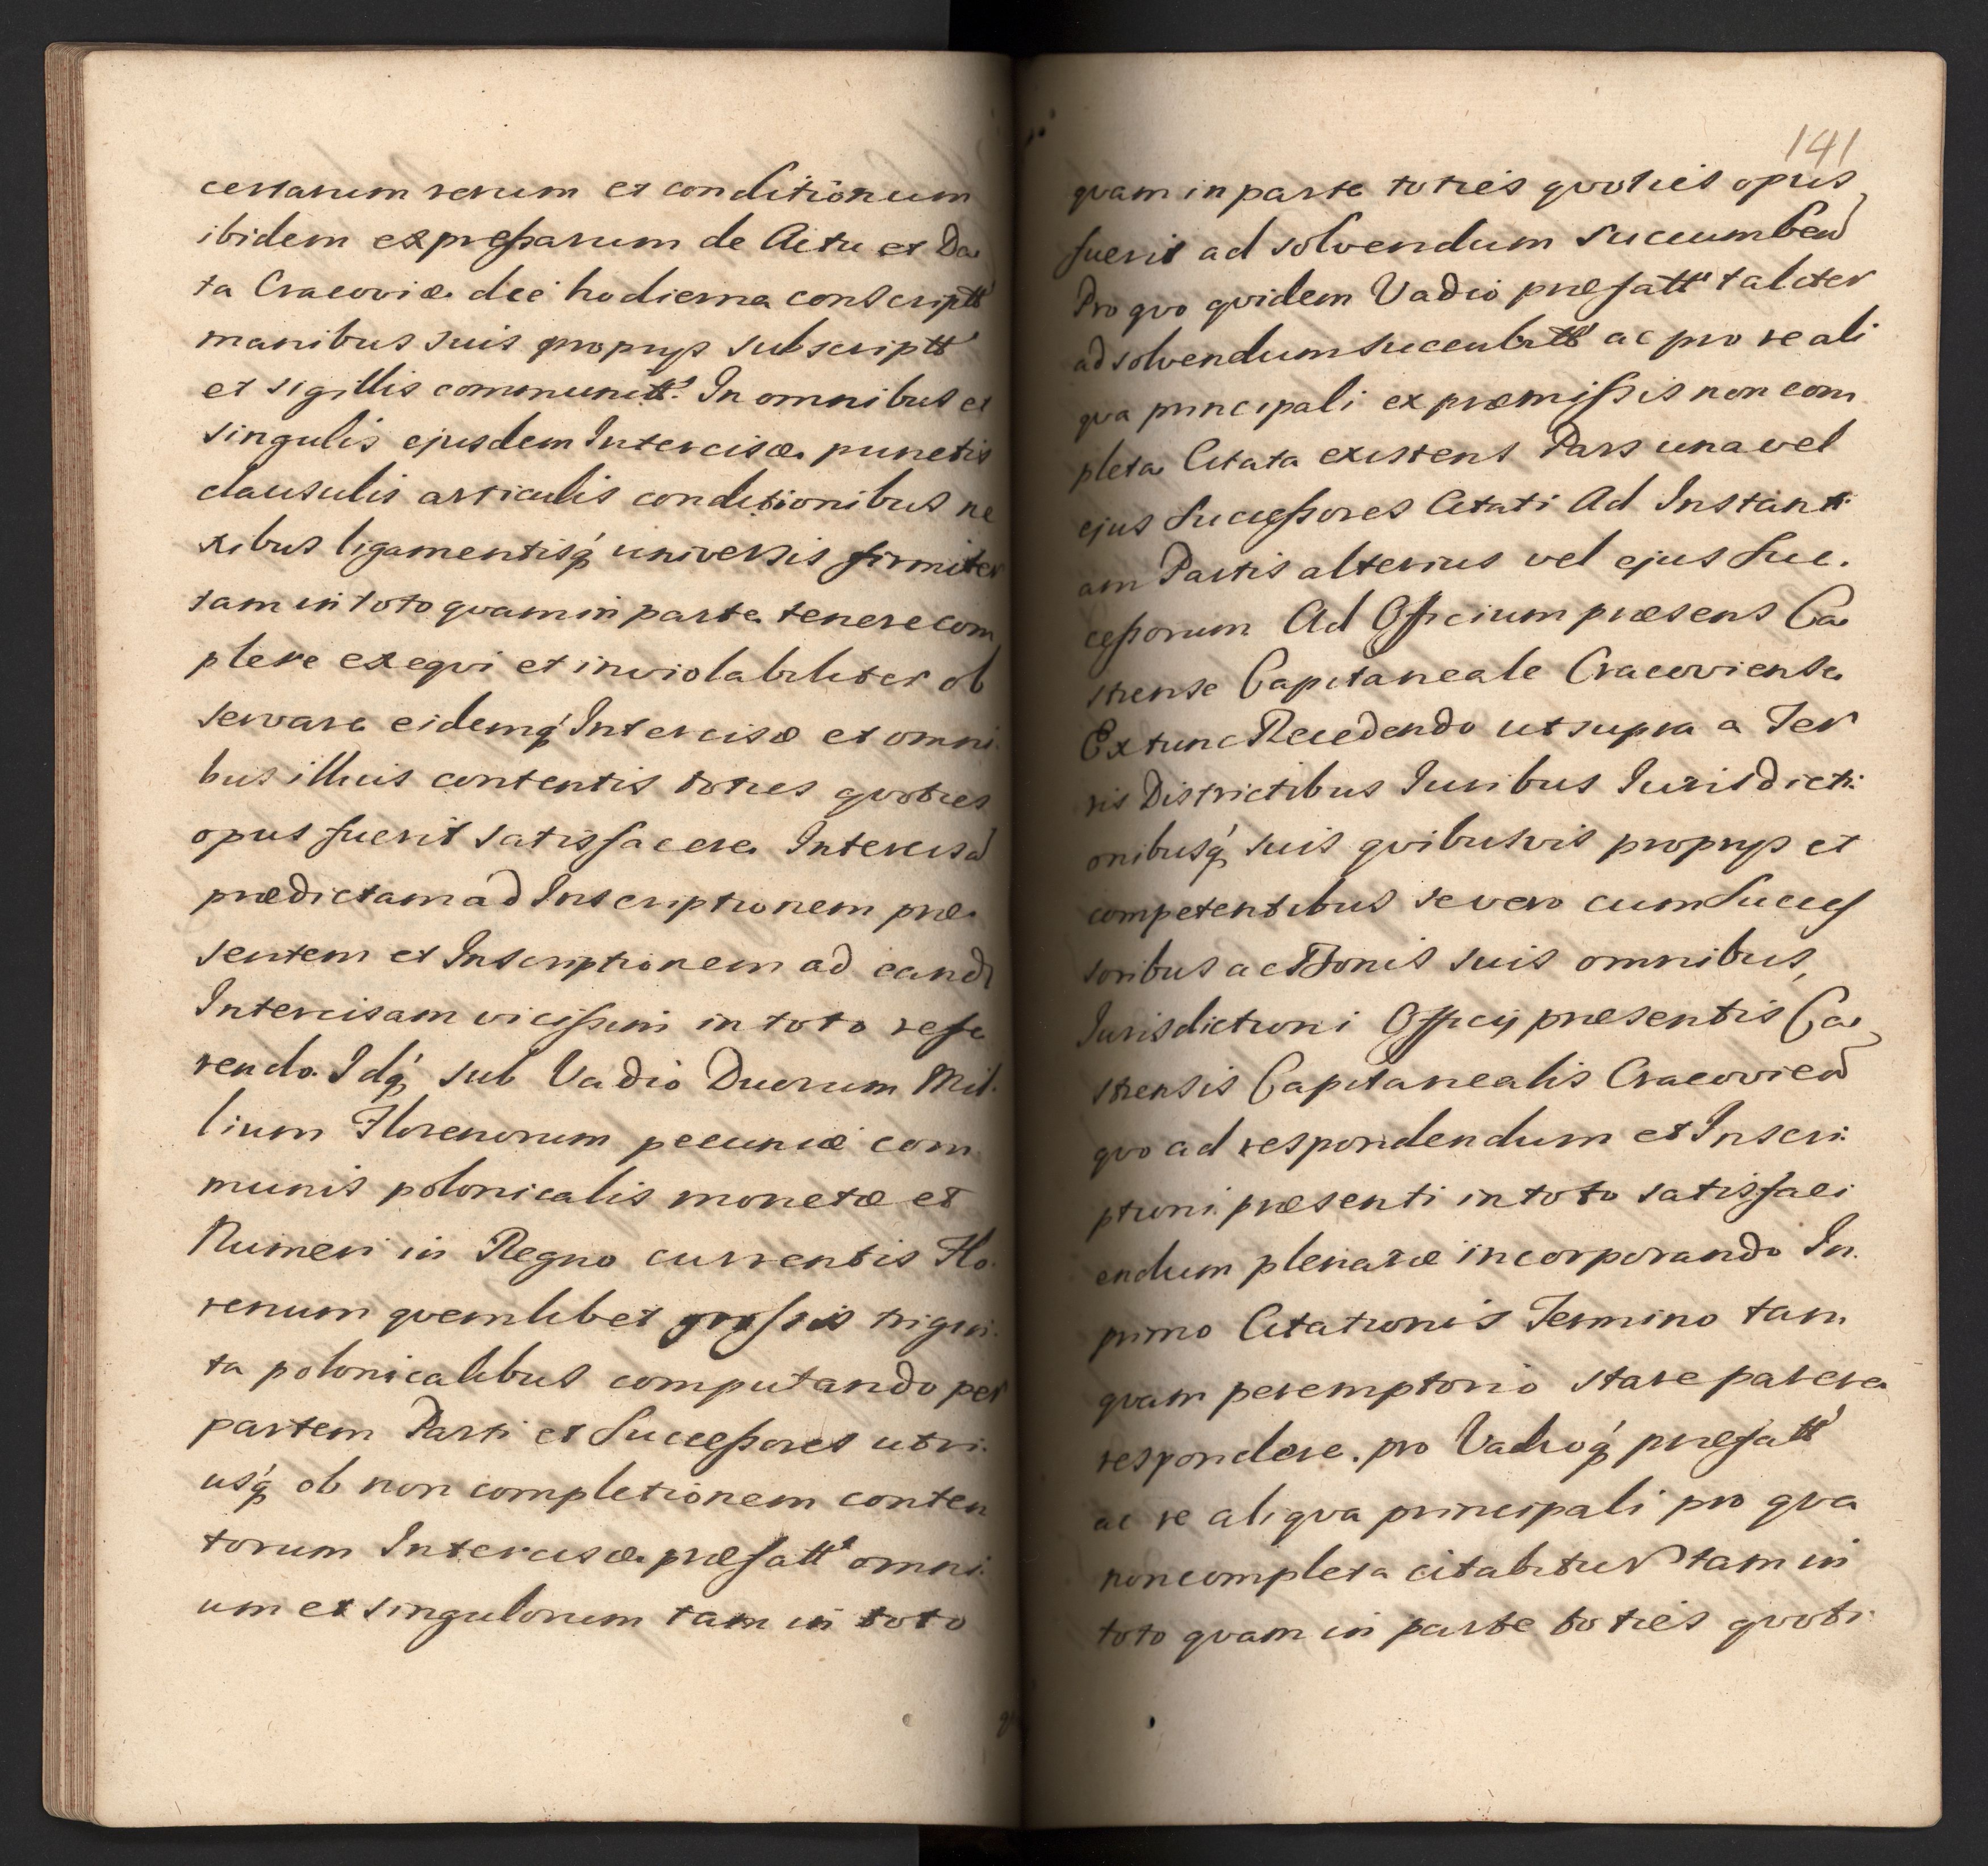 certarum rerum et conditionum
ibidem expressarum de Actu et Da
ta Cracoviæ die hodierna conscriptt
manibus suis proprijs subscriptt
et sigillis communitt. In omnibus et
singulis ejusdem Intercisæ punctis
clausulis articulis conditionibus ne
xibus ligamentisq́ universis firmiter
tam in toto quam in parte tenere com
plere exequi et inviolabiliter ob
servare eidemq́ Intercisæ et omni
bus illius contentis toties quoties
opus fuerit satisfacere Intercisā
prædictam ad Inscriptionem præ
sentem et Inscriptionem ad eand
Intercisam vicissim in toto refe
rendo. Idq́ sub Vadio Duorum Mil
lium Florenorum pecuniæ com
munis polonicalis monetæ et
Numeri in Regno currentis Flo
renum quemlibet grossis trigin
ta polonicalibus computando per
partem Parti et Successores utri
usq́ ob non completionem conten
torum Intercisæ præfatt omni
um et singulorum tam in toto
141
quam in parte toties quoties opus
fuerit ad solvendum succumbend
Pro quo quidem Vadio præfatt taliter
ad solvendum succubitt ac pro re ali
qua principali ex præmissis non com
pleta Citata existens Pars una vel
ejus Successores Citati Ad Instanti
am Partis alterius vel ejus Suc.
cessorum Ad Officium præsens Ca
strense Capitaneale Cracoviense
Extunc Recedendo ut supra a Ter
ris Districtibus Iuribus Iurisdicti
onibusq́ suis quibusvis proprijs et
competentibus se vero cum Succes
soribus ac Bonis suis omnibus,
Jurisdictioni Officij præsentis Ca
strensis Capitanealis Cracovien
quo ad respondendum et Inscri
ptioni præsenti in toto satisfaci
endum plenarie incorporando In
primo Citationis Termino tam
quam peremptorio stare parere
respondere. pro Vadioq́ præfatt
ac re aliqua principali pro qua
non completa citabitur tam in
toto quam in parte toties quoti